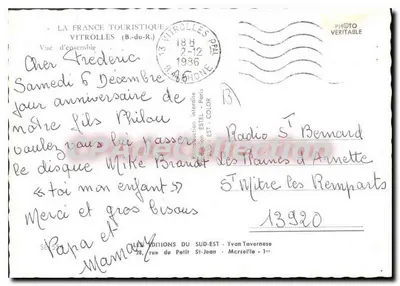 LA FRANCE TOURISTIQUE
VITROLLES (B.-du-R.)
Vue d'ensemble
PHOTO
VERITABLE
13 VITROLLES PPAL
18 H
2-12
1986
B. DU RHONE
Cher Frederic
Samedi 6 Decembre
jour anniversaire de
notre fils Philou
voulez vous lui passer
le disque Mike Brandt
« toi mon enfant »
Merci et gros bisous
Papa et
Mamany
Radio St Bernard
les Plaines d'Arnette
St Mitre les Remparts
13920
EDITIONS DU SUD-EST - Yvan Tavernese
28, rue du Petit St-Jean - Marseille - 1er